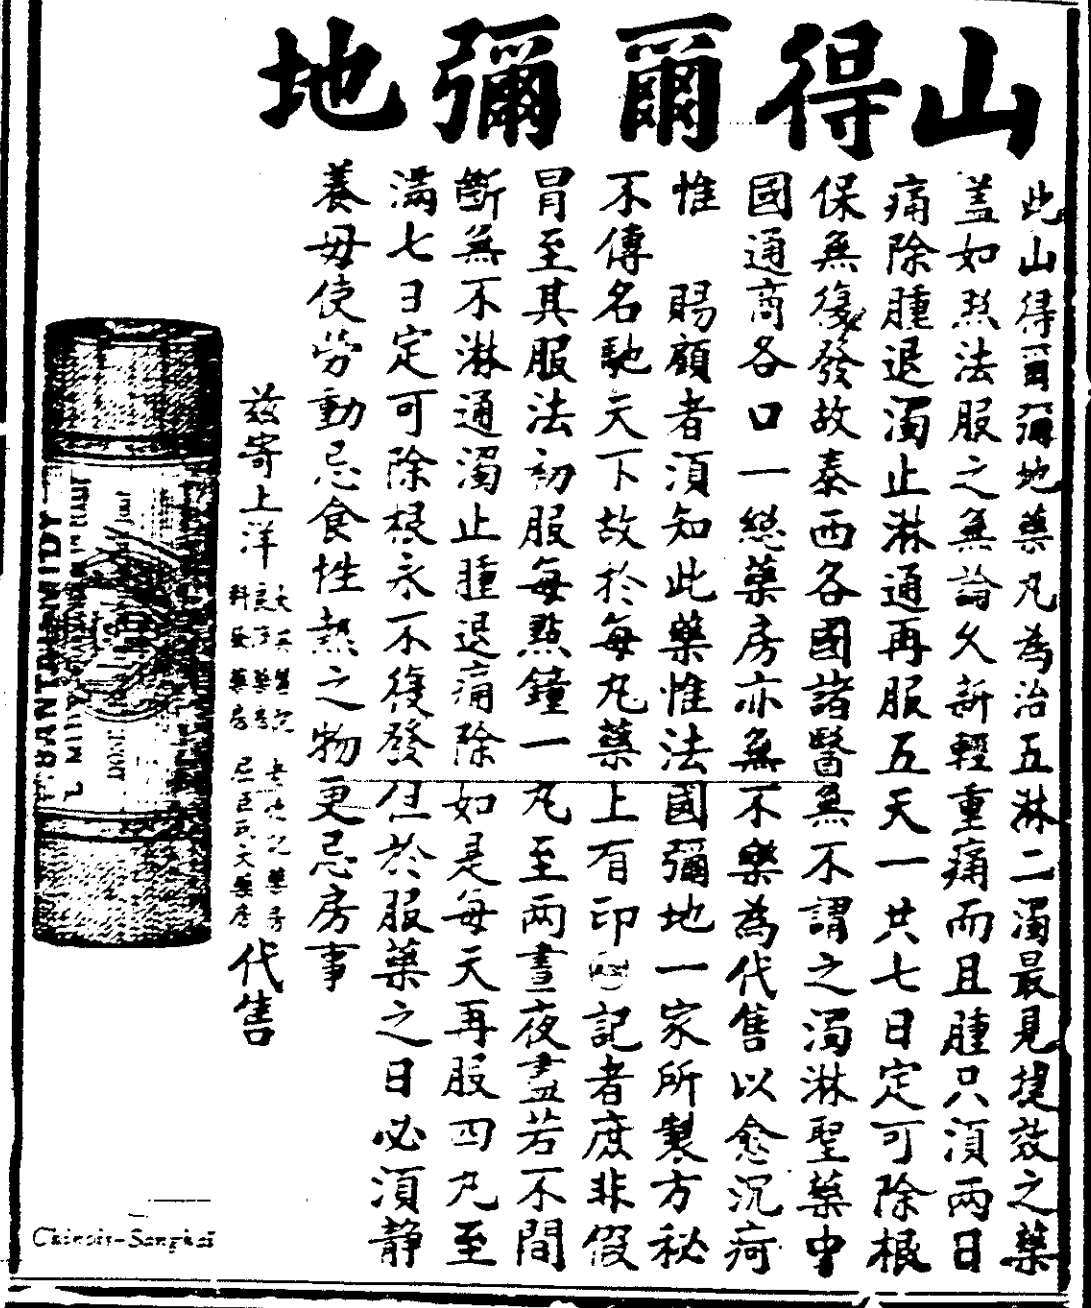 山得爾彌地
此山得爾彌地藥凡為治五淋二濁最見捷效之藥
蓋如照法服之無論久新輕重痛而且腫只須兩日
痛除腫退濁止淋通再服五天一共七日定可除根
保無復發故泰西各國諸醫無不謂之濁淋聖藥中
國通商各口一總藥房亦無不樂為代售以愈沉疴
惟　賜顧者須知此藥惟法國彌地一家所製方秘
不傳名馳天下故於每丸藥上有印記者庶非假
冒至其服法初服每點鐘一丸至兩晝夜盡若不間
斷無不淋通濁止腫退痛除如是每天再服四丸至
滿七日定可除根永不復發但於服藥之日必須静
養毋使勞動忌食性熱之物更忌房事
茲寄上洋
藥房
藥房
藥房
代售
SANTAL MIDY
Chinois-Sangkaï